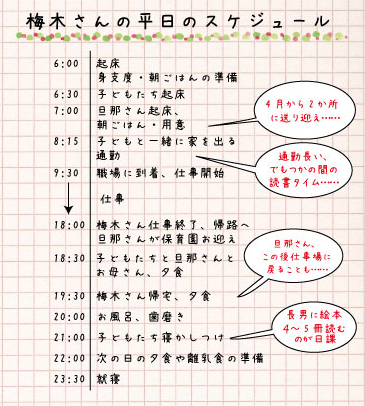 梅木さんの平日のスケジュール
6:00 起床
身支度・朝ごはんの準備
6:30 子どもたち起床
7:00 旦那さん起床、
朝ごはん・用意
4月から2か所
に送り迎え……
8:15 子どもと一緒に家を出る
通勤
通勤長い、
でもつかの間の
読書タイム……
9:30 職場に到着、仕事開始
仕事
18:00 梅木さん仕事終了、帰路へ
旦那さんが保育園お迎え
18:30 子どもたちと旦那さんと
お母さん、夕食
旦那さん、
この後仕事場に
戻ることも……
19:30 梅木さん帰宅、夕食
20:00 お風呂、歯磨き
21:00 子どもたち寝かしつけ
長男に絵本
4~5冊読む
のが日課
22:00 次の日の夕食や離乳食の準備
23:30 就寝